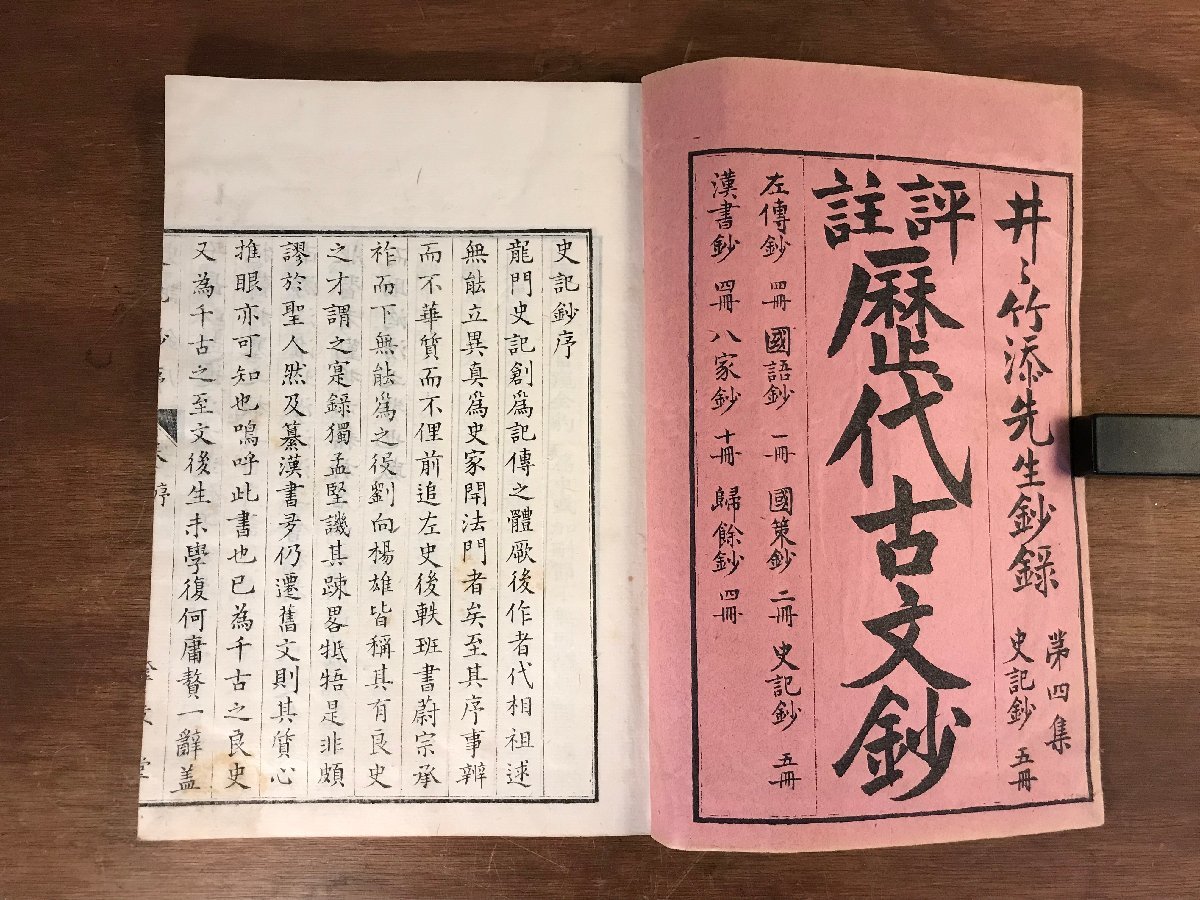 井〻竹添先生鈔録
第四集
史記鈔 五冊
評註
歴代古文鈔
左傳鈔 四冊 國語鈔 一冊 國策鈔 二冊 史記鈔 五冊
漢書鈔 四冊 八家鈔 十冊 歸餘鈔 四冊
史記鈔序
龍門史記創爲記傳之體厥後作者代相祖述
無能立異真爲史家開法門者矣至其序事辨
而不華質而不俚前追左史後軼班書蔚宗承
祚而下無能爲之役劉向楊雄皆稱其有良史
之才謂之寔録獨孟堅譏其疎畧牴牾是非頗
謬於聖人然及纂漢書多仍遷舊文則其質心
推眼亦可知也嗚呼此書也已為千古之良史
又為千古之至文後生末學復何庸贅一辭盖
序